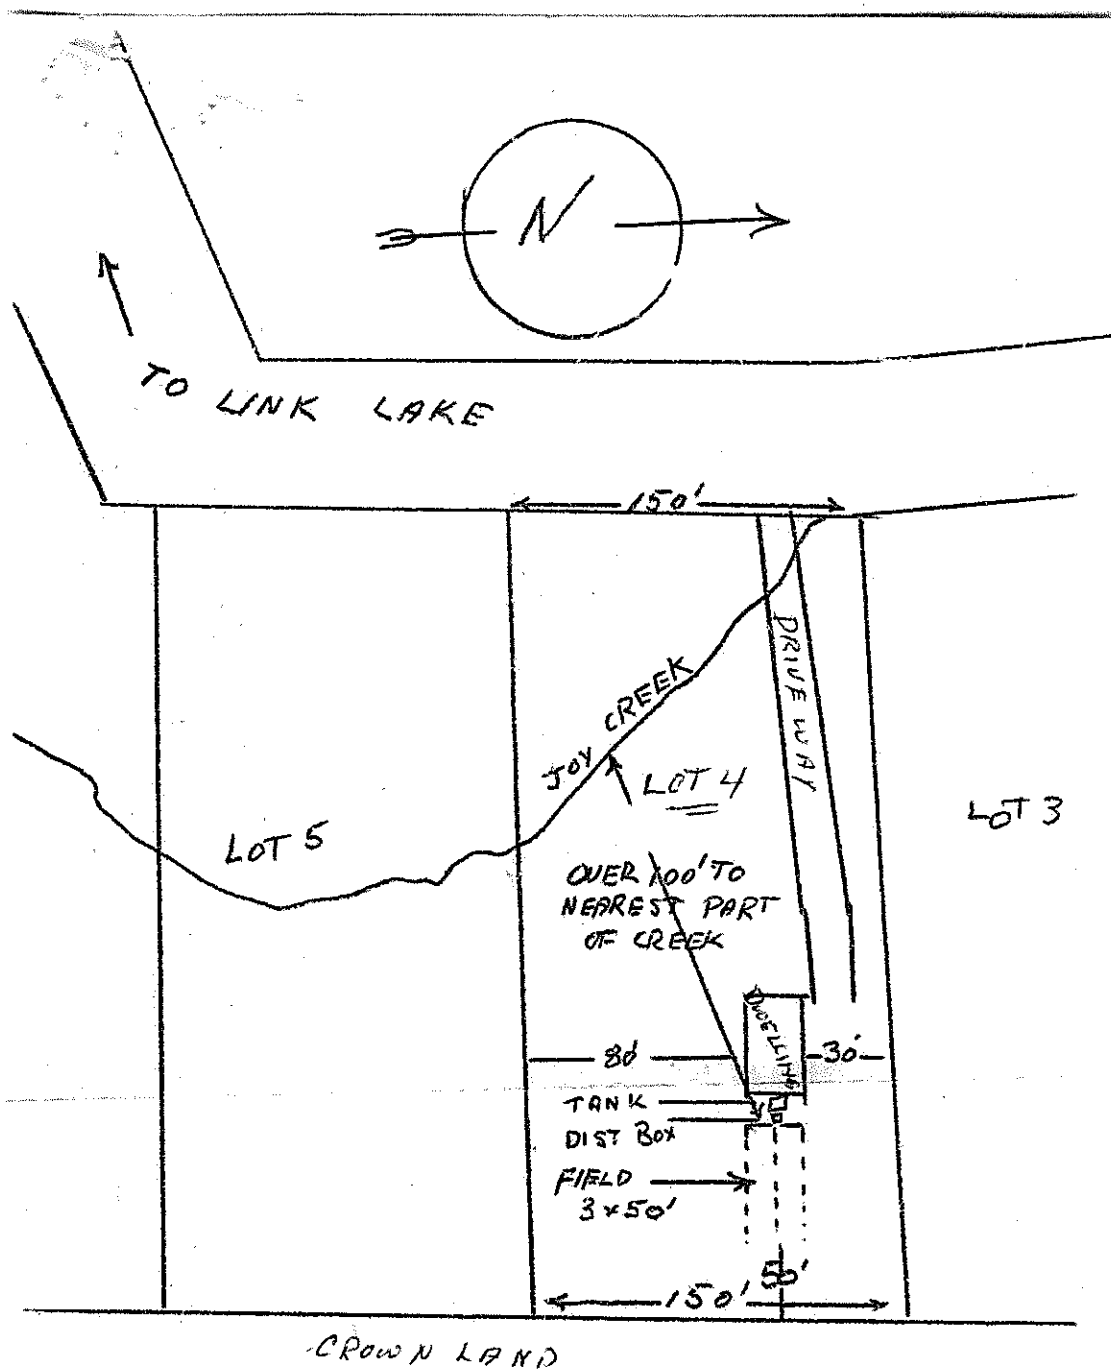 N
TO LINK LAKE
150'
DRIVEWAY
JOY CREEK
LOT 4
LOT 3
LOT 5
OVER 100' TO
NEAREST PART
OF CREEK
DWELLING
80'
30'
TANK
DIST BOX
FIELD
3 x 50'
50'
150'
CROWN LAND